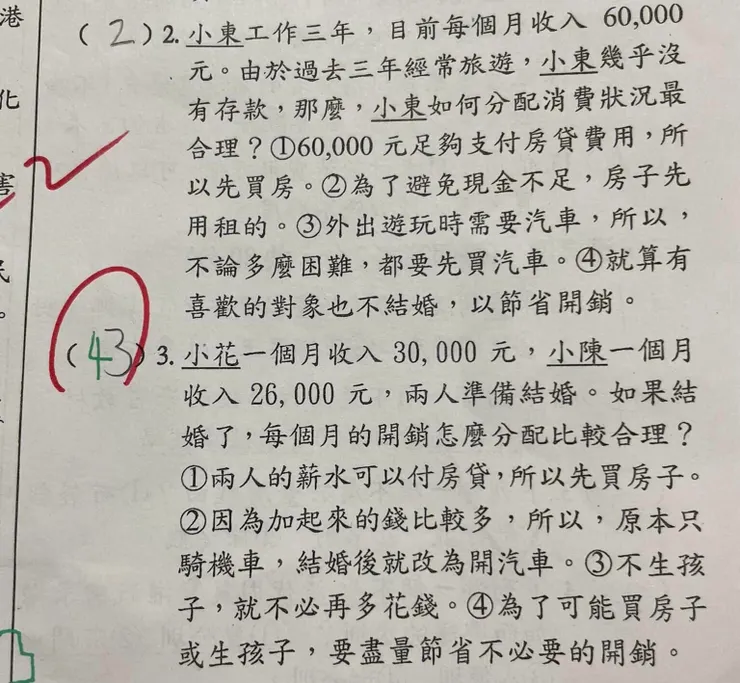 港
(2)2.小東工作三年，目前每個月收入 60,000
元。由於過去三年經常旅遊，小東幾乎沒
化
有存款，那麼，小東如何分配消費狀況最
合理？①60,000 元足夠支付房貸費用，所
害
以先買房。②為了避免現金不足，房子先
用租的。③外出遊玩時需要汽車，所以，
不論多麼困難，都要先買汽車。④就算有
喜歡的對象也不結婚，以節省開銷。
(43)3.小花一個月收入 30,000 元，小陳一個月
收入 26,000 元，兩人準備結婚。如果結
婚了，每個月的開銷怎麼分配比較合理？
①兩人的薪水可以付房貸，所以先買房子。
②因為加起來的錢比較多，所以，原本只
騎機車，結婚後就改為開汽車。③不生孩
子，就不必再多花錢。④為了可能買房子
或生孩子，要盡量節省不必要的開銷。